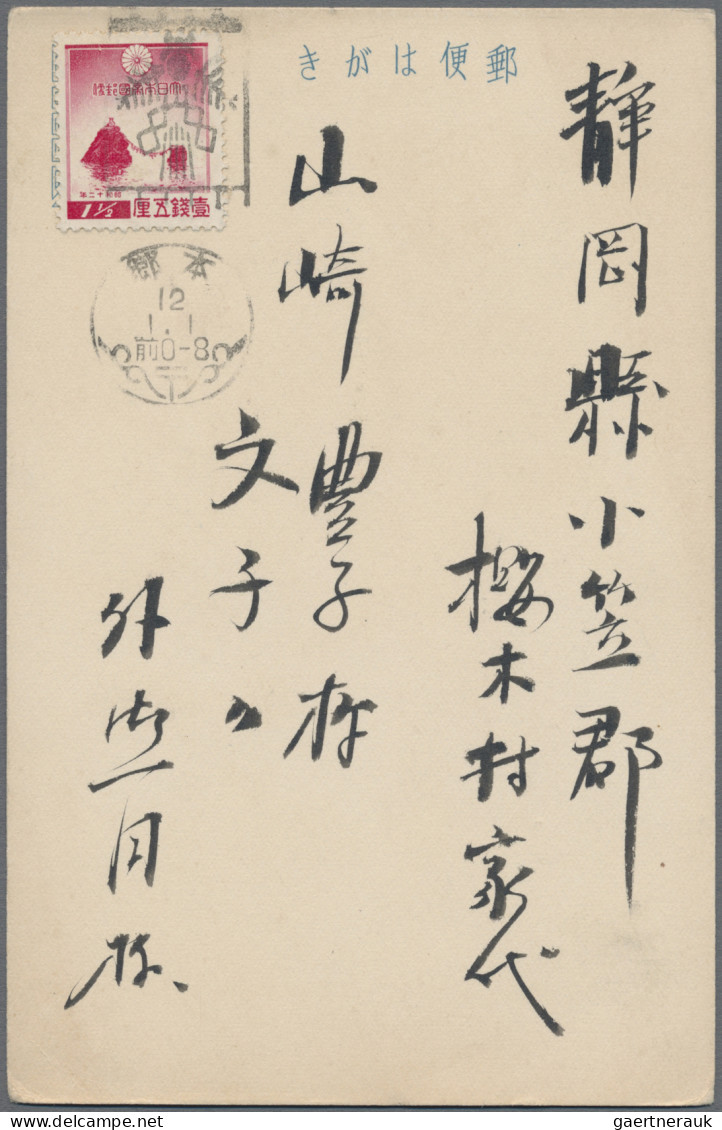 郵便はがき
大日本帝國郵便
昭和十二年
1½ 壹錢五厘
本郷
12
1.1
前0-8
静岡縣小笠郡
桜木村家代
山崎豊子様
文子〃
外御一同様
gaertnerauk